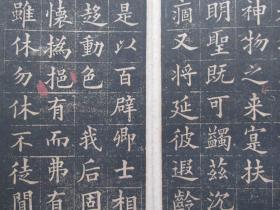 神物之来寔扶
明聖既可蠲茲沉
痼又將延彼遐齡
是以百辟卿士相
趍動色我后固
懷撝挹有而弗有
雖休勿休不徒聞